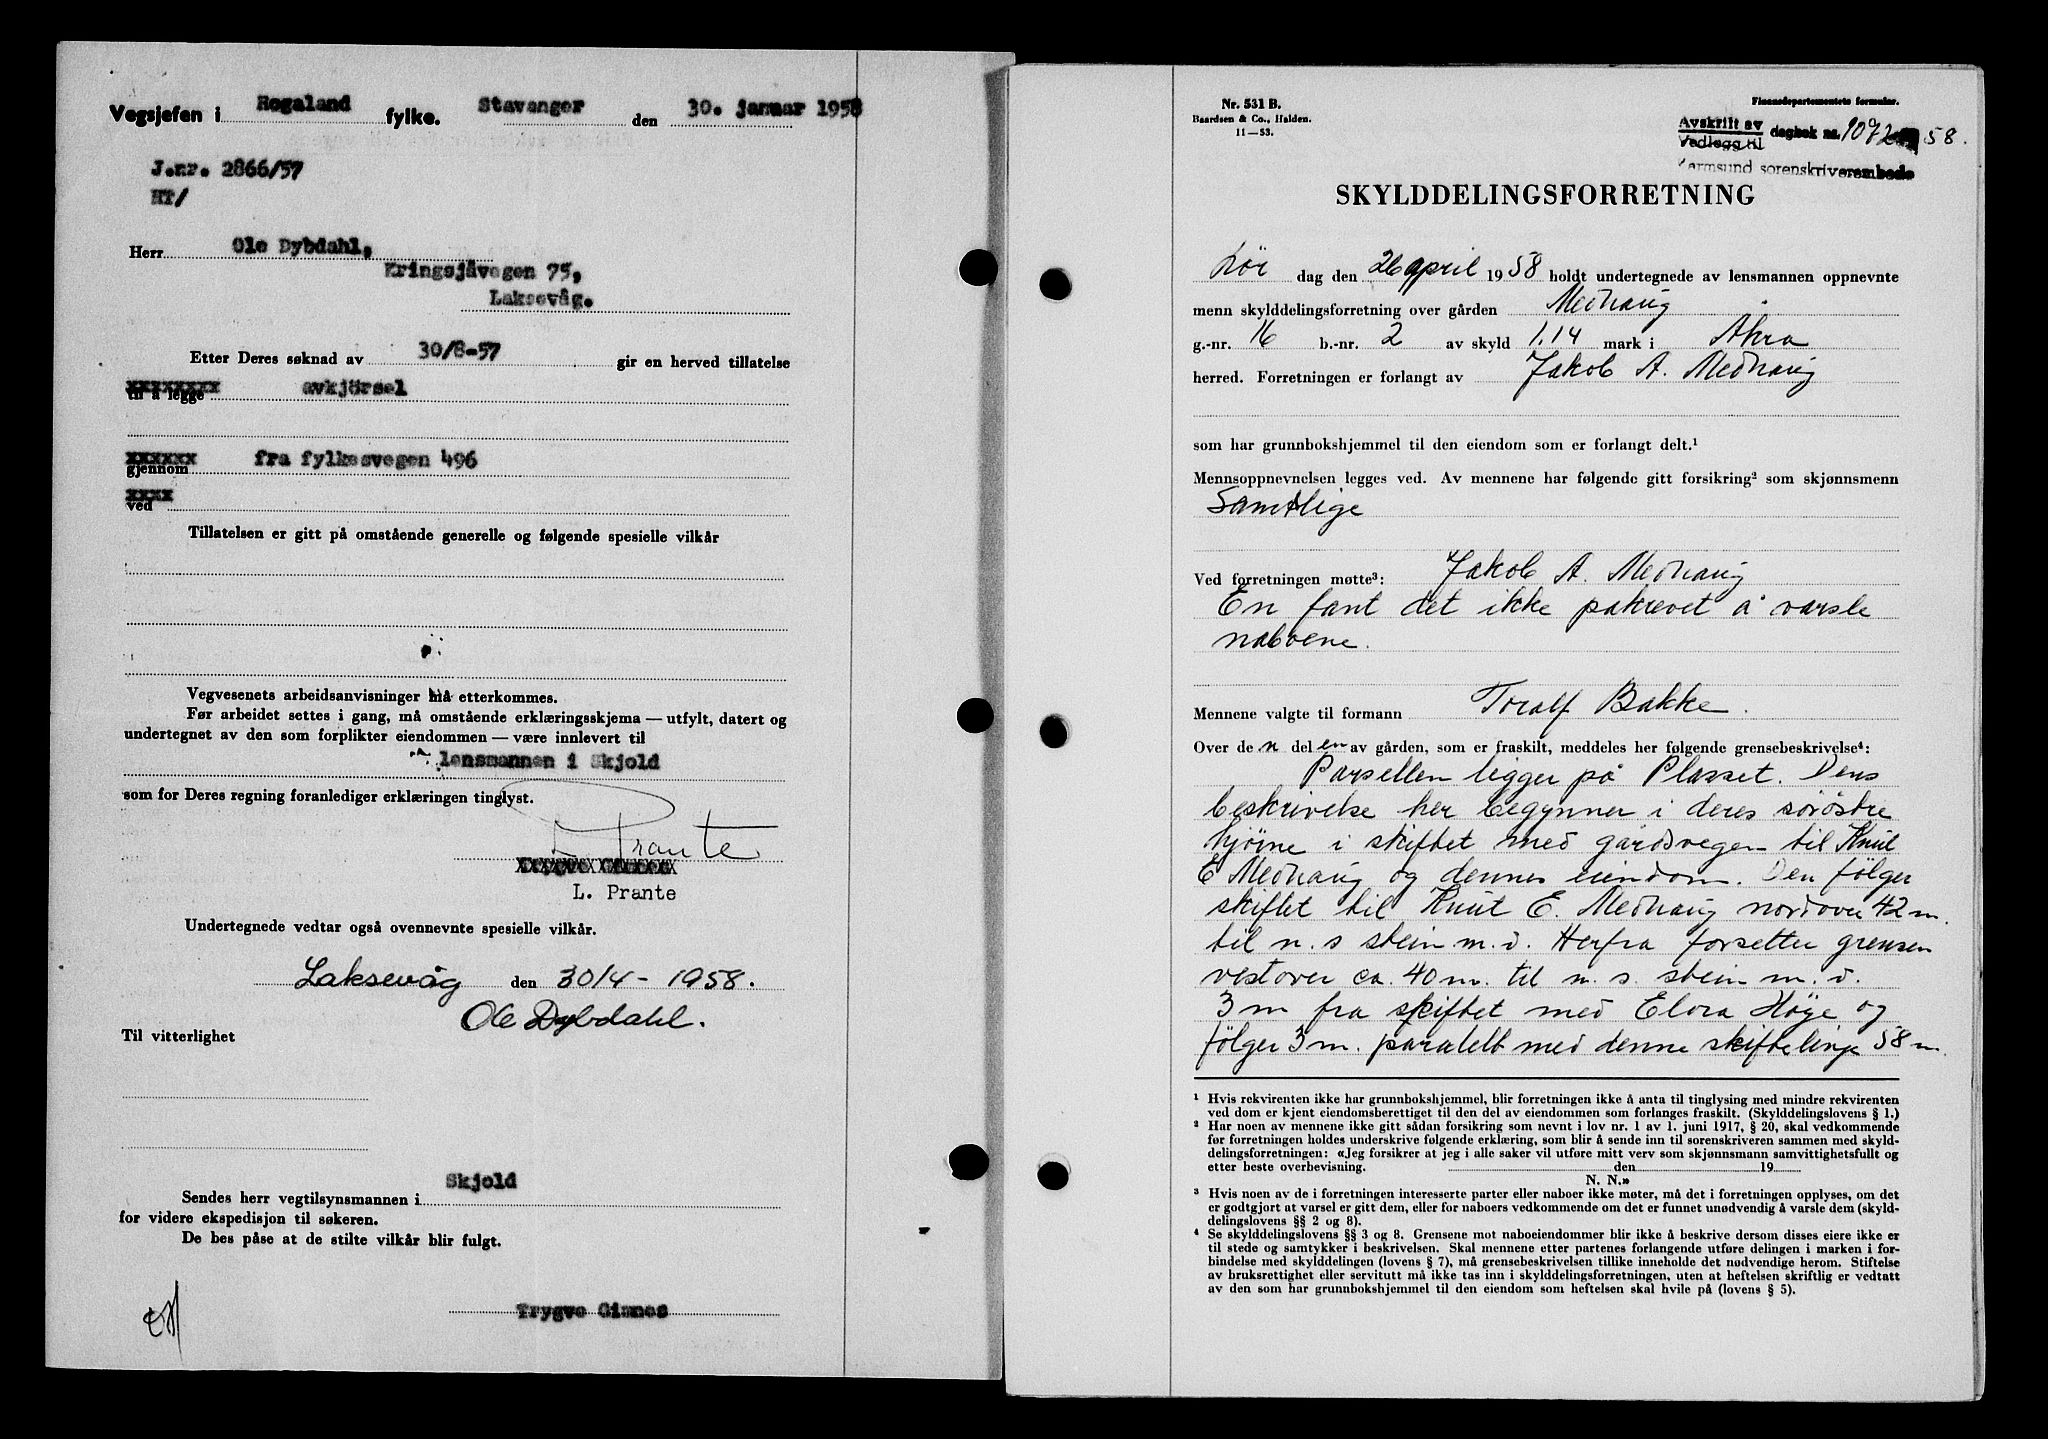 Vegsjefen i Rogaland fylke. Stavanger den 30. januar 1958
J.nr. 2866/57
HT/
Herr Ole Dybdahl,
Kringsjåvegen 75,
Laksevåg.
Etter Deres søknad av 30/8-57 gir en herved tillatelse
xxxxxxxx
til å legge avkjörsel
xxxxxx
gjennom fra fylkesvegen 496
xxxx
ved
Tillatelsen er gitt på omstående generelle og følgende spesielle vilkår
Vegvesenets arbeidsanvisninger må etterkommes.
Før arbeidet settes i gang, må omstående erklæringsskjema — utfylt, datert og
undertegnet av den som forplikter eiendommen — være innlevert til
lensmannen i Skjold
som for Deres regning foranlediger erklæringen tinglyst.
L Prante
L. Prante
Undertegnede vedtar også ovennevnte spesielle vilkår.
Laksevåg den 30/4 - 1958.
Ole Dybdahl.
Til vitterlighet
Sendes herr vegtilsynsmannen i Skjold
for videre ekspedisjon til søkeren.
De bes påse at de stilte vilkår blir fulgt.
Trygve Gismes
Nr. 531 B.
Baardsen & Co., Halden.
11—53.
Finansdepartementets formular.
Avskrift av
Vedlegg til dagbok nr. 1072 58.
Karmsund sorenskriverembede
SKYLDDELINGSFORRETNING
Lør dag den 26 april 1958 holdt undertegnede av lensmannen oppnevnte
menn skylddelingsforretning over gården Medhaug
g.-nr. 16 b.-nr. 2 av skyld 1,14 mark i Åkra
herred. Forretningen er forlangt av Jakob A. Medhaug
som har grunnbokshjemmel til den eiendom som er forlangt delt.¹
Mennsoppnevnelsen legges ved. Av mennene har følgende gitt forsikring² som skjønnsmenn
Samtlige
Ved forretningen møtte³: Jakob A. Medhaug
En fant det ikke påkrevet å varsle
naboene.
Mennene valgte til formann Toralf Bakke.
Over den delen av gården, som er fraskilt, meddeles her følgende grensebeskrivelse⁴:
Parsellen ligger på Plasset. Dens
beskrivelse her begynner i deres sørøstre
hjørne i skiftet med gårdsvegen til Knut
E Medhaug og dennes eiendom. Den følger
skiftet til Knut E. Medhaug nordover 42 m.
til n. s stein m. v. Herfra forsetter grensen
vestover ca. 40 m. til n. s. stein m. v.
3 m fra skiftet med Elora Høge og
følger 3 m. paralelt med denne skiftelinje 58 m.
¹ Hvis rekvirenten ikke har grunnbokshjemmel, blir forretningen ikke å anta til tinglysing med mindre rekvirenten
ved dom er kjent eiendomsberettiget til den del av eiendommen som forlanges fraskilt. (Skylddelingslovens § 1.)
² Har noen av mennene ikke gitt sådan forsikring som nevnt i lov nr. 1 av 1. juni 1917, § 20, skal vedkommende
før forretningen holdes underskrive følgende erklæring, som blir å sende inn til sorenskriveren sammen med skyld-
delingsforretningen: «Jeg forsikrer at jeg i alle saker vil utføre mitt verv som skjønnsmann samvittighetsfullt og
etter beste overbevisning. den 19
N. N.»
³ Hvis noen av de i forretningen interesserte parter eller naboer ikke møter, må det i forretningen opplyses, om det
er godtgjort at varsel er gitt dem, eller for naboers vedkommende om det er funnet unødvendig å varsle dem (skyld-
delingslovens §§ 2 og 8).
⁴ Se skylddelingslovens §§ 3 og 8. Grensene mot naboeiendommer blir ikke å beskrive dersom disses eiere ikke er
til stede og samtykker i beskrivelsen. Skal mennene etter partenes forlangende utføre delingen i marken i for-
bindelse med skylddelingen (lovens § 7), må grensebeskrivelsen tillike inneholde det nødvendige herom. Stiftelse
av bruksrettighet eller servitutt må ikke tas inn i skylddelingsforretningen, uten at heftelsen skriftlig er vedtatt
av den som har grunnbokshjemmel til den eiendom som heftelsen skal hvile på (lovens § 5).